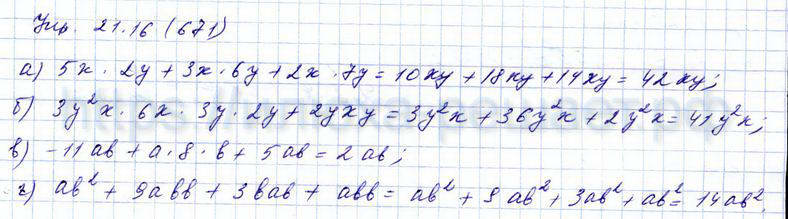 Упр. 21.16 (671)
а) 5x · 2y + 3x · 6y + 2x · 7y = 10xy + 18xy + 14xy = 42xy;
б) 3y²x · 6x · 3y · 2y + 2yxy = 3y²x + 36y²x + 2y²x = 41y²x;
в) -11ab + a · 8 · b + 5ab = 2ab;
г) ab² + 9abb + 3bab + abb = ab² + 9ab² + 3ab² + ab² = 14ab².